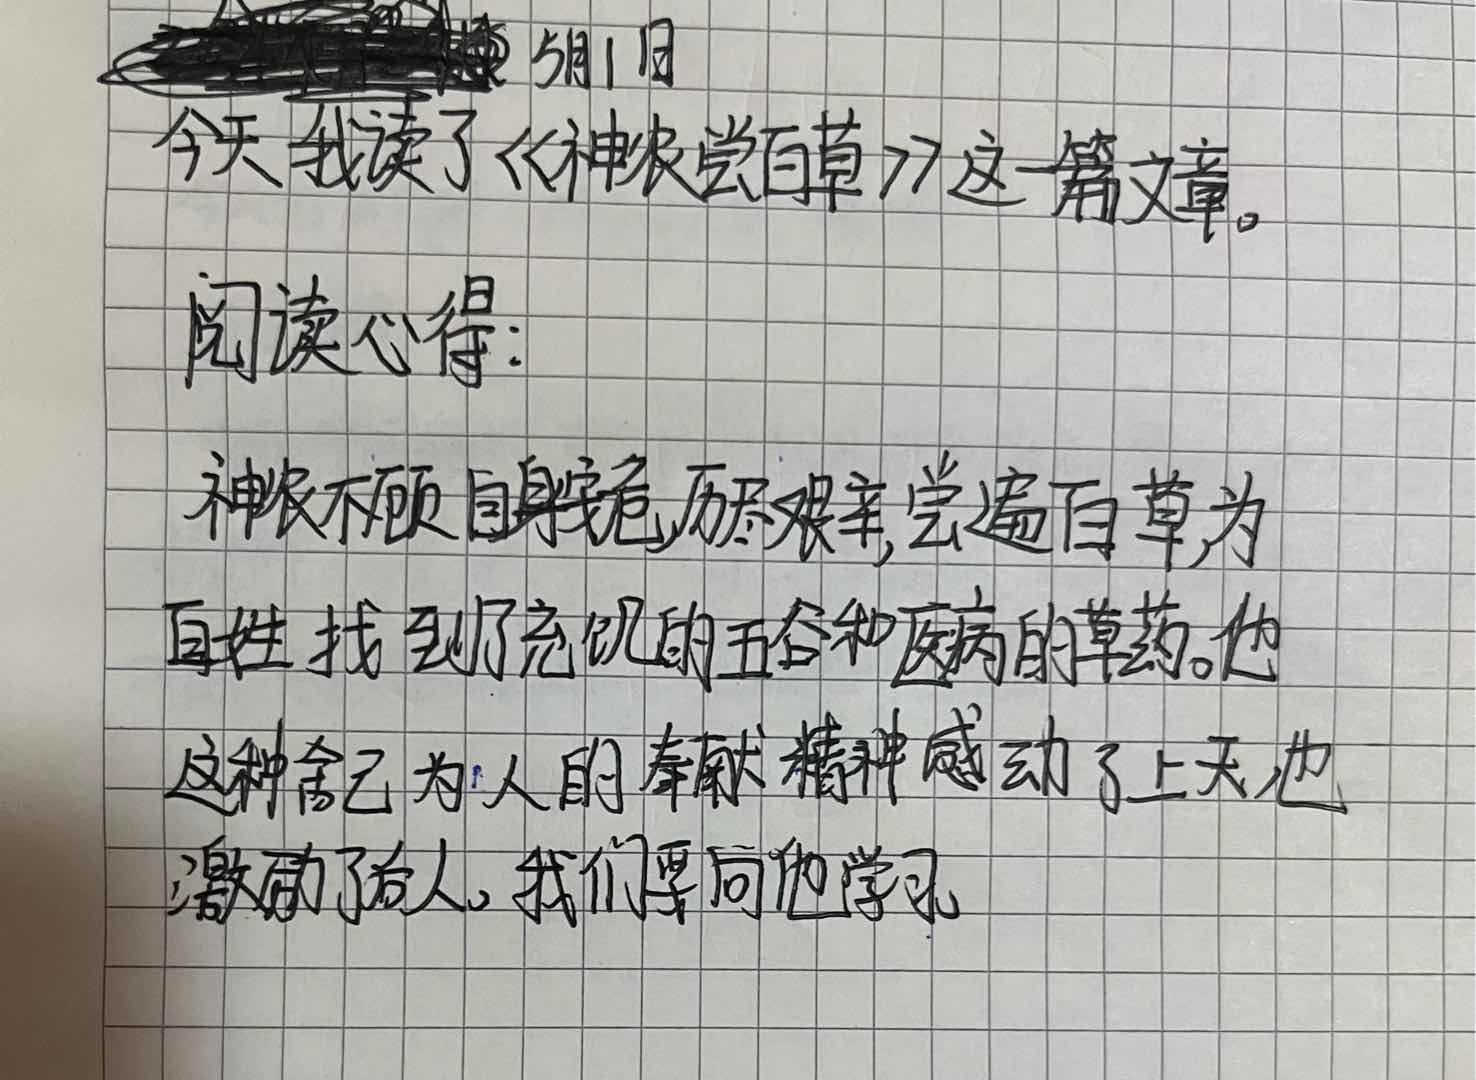 5月1日
今天我读了《神农尝百草》这一篇文章。
阅读心得:
神农不顾自身安危,历尽艰辛,尝遍百草,为
百姓找到了充饥的五谷和医病的草药。他
这种舍己为人的奉献精神感动了上天也
激励了后人。我们要向他学习。